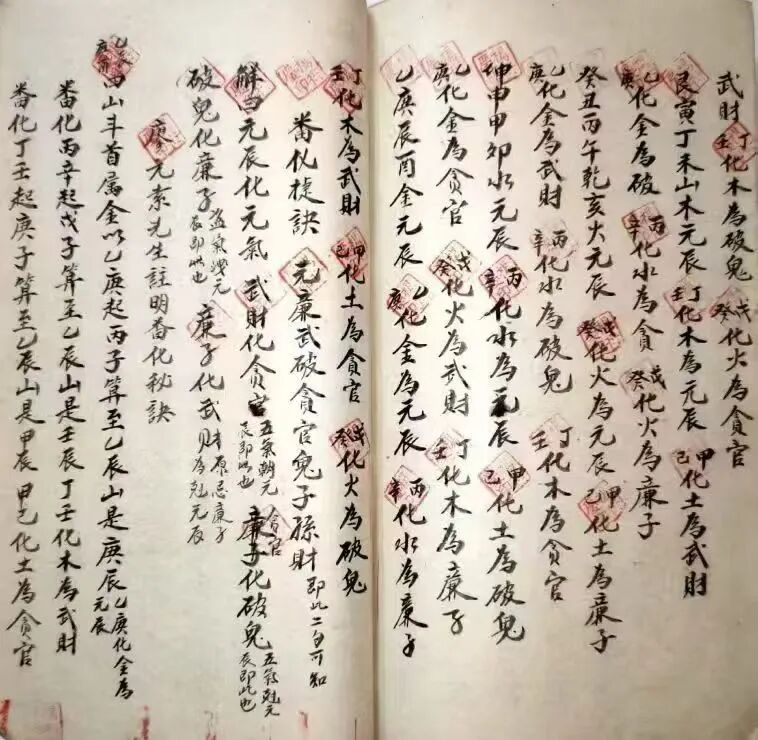 武財 丁壬化木為破鬼 戊癸化火為貪官
艮寅丁未山木元辰 丁壬化木為元辰 甲己化土為武財
乙庚化金為破 丙辛化水為貪 戊癸化火為廉子
癸丑丙午乾亥火元辰 戊癸化火為元辰 甲乙化土為廉子
乙庚化金為武財 丙辛化水為破鬼 丁壬化木為貪官
坤申甲卯水元辰 丙辛化水為元辰 甲己化土為破鬼
乙庚化金為貪官 戊癸化火為武財 丁壬化木為廉子
乙庚辰酉金元辰 乙庚化金為元辰 丙辛化水為廉子
丁壬化木為武財 甲己化土為貪官 戊癸化火為破鬼
番化捷訣 元廉武破貪官鬼子孫財 即此二句可知
解曰元辰化元氣 武財化貪官 五氣朝元辰即此也 貪官廉子化破鬼 五氣尅元辰即此也
破鬼化廉子 盜氣洩元辰即此也 廉子化武財 原忌廉子為尅元辰
廖元素先生註明番化秘訣
乙辰庚酉四山斗首屬金以乙庚起丙子算至乙辰山是庚辰 乙庚化金為元辰
番化丙辛起戊子算至乙辰山是壬辰丁壬化木為武財
番化丁壬起庚子算至乙辰山是甲辰甲己化土為貪官